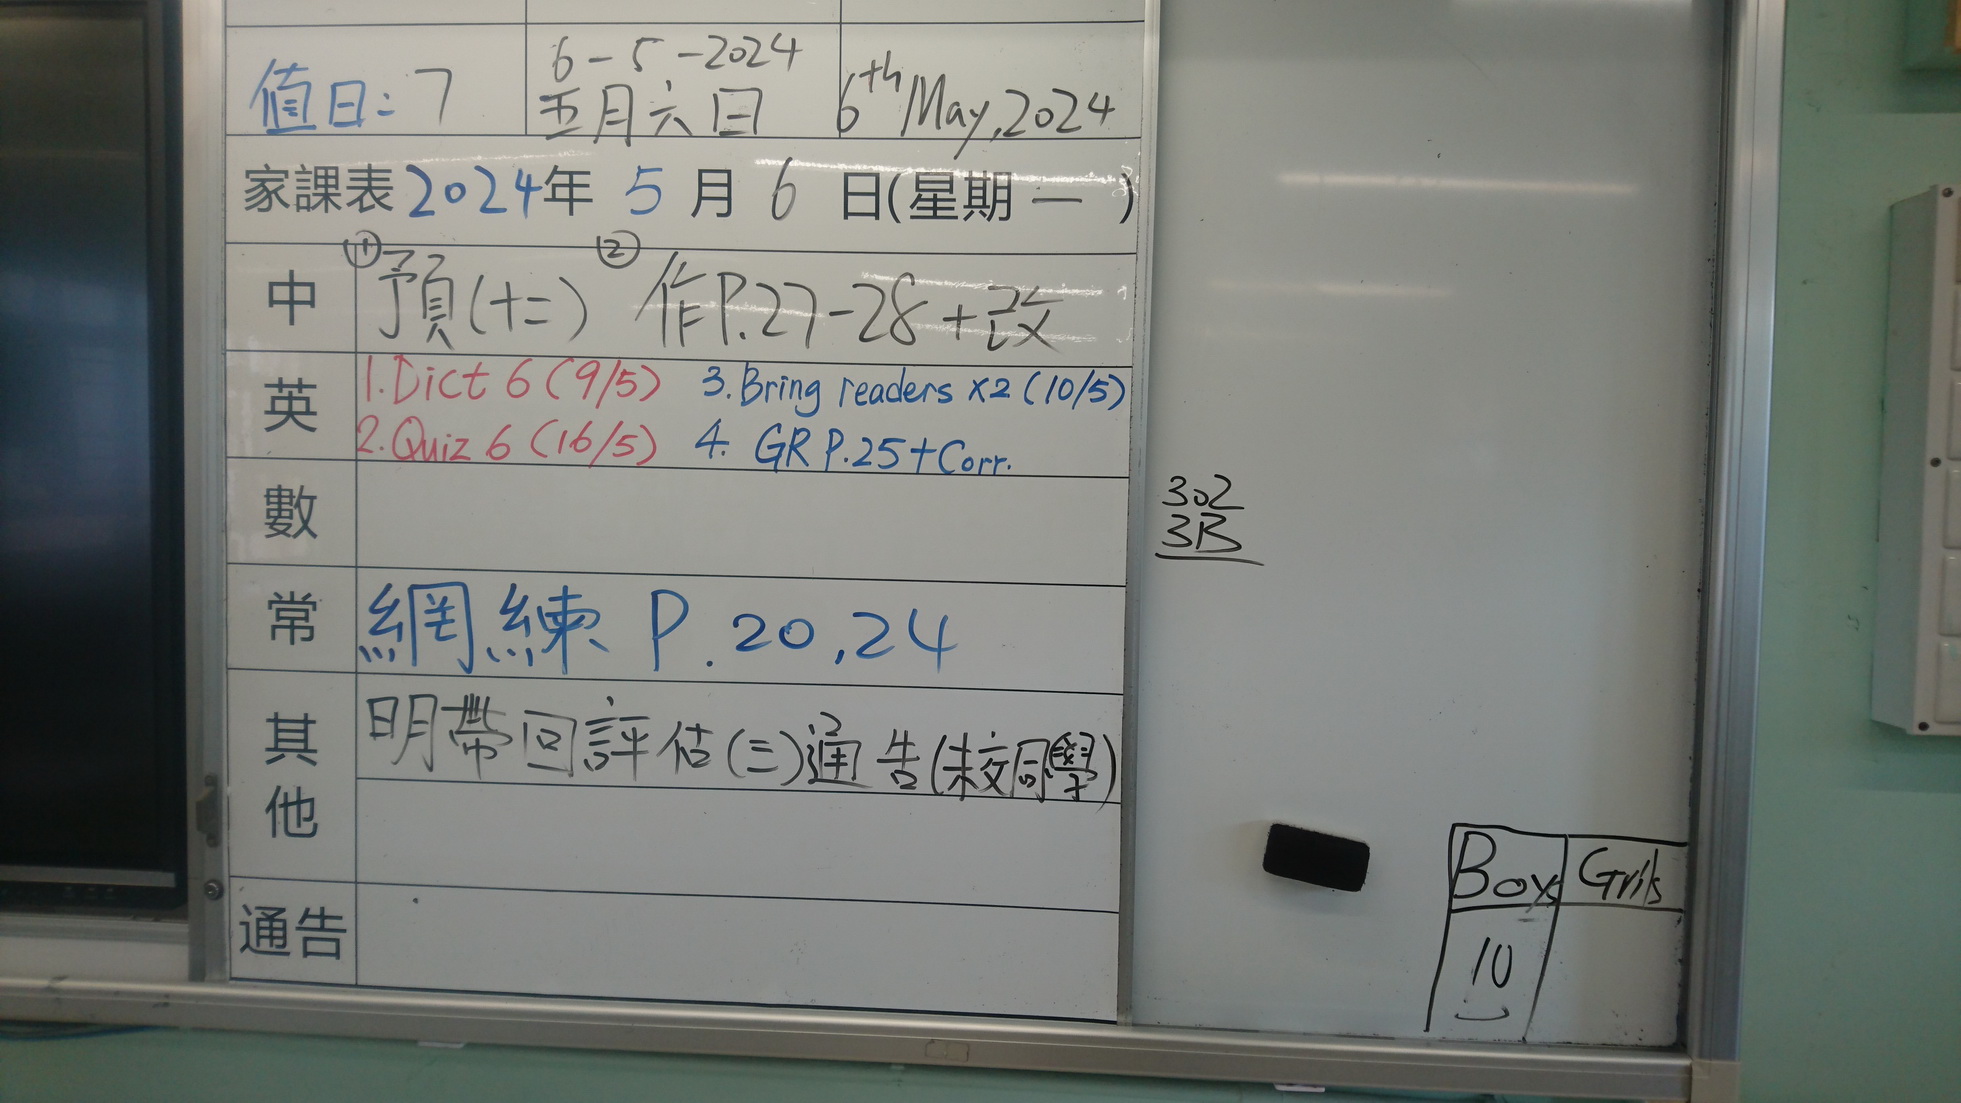 值日：7
6-5-2024
五月六日
6th May, 2024
家課表 2024年 5 月 6 日(星期 一 )
中
① 預(十二) ② 作P.27-28+改
英
1. Dict 6 (9/5) 3. Bring readers x2 (10/5)
2. Quiz 6 (16/5) 4. GR P.25+Corr.
數
常
網練 P.20,24
其他
明帶回評估(三)通告(校同學)
通告
302
3B
Boys Grils
10